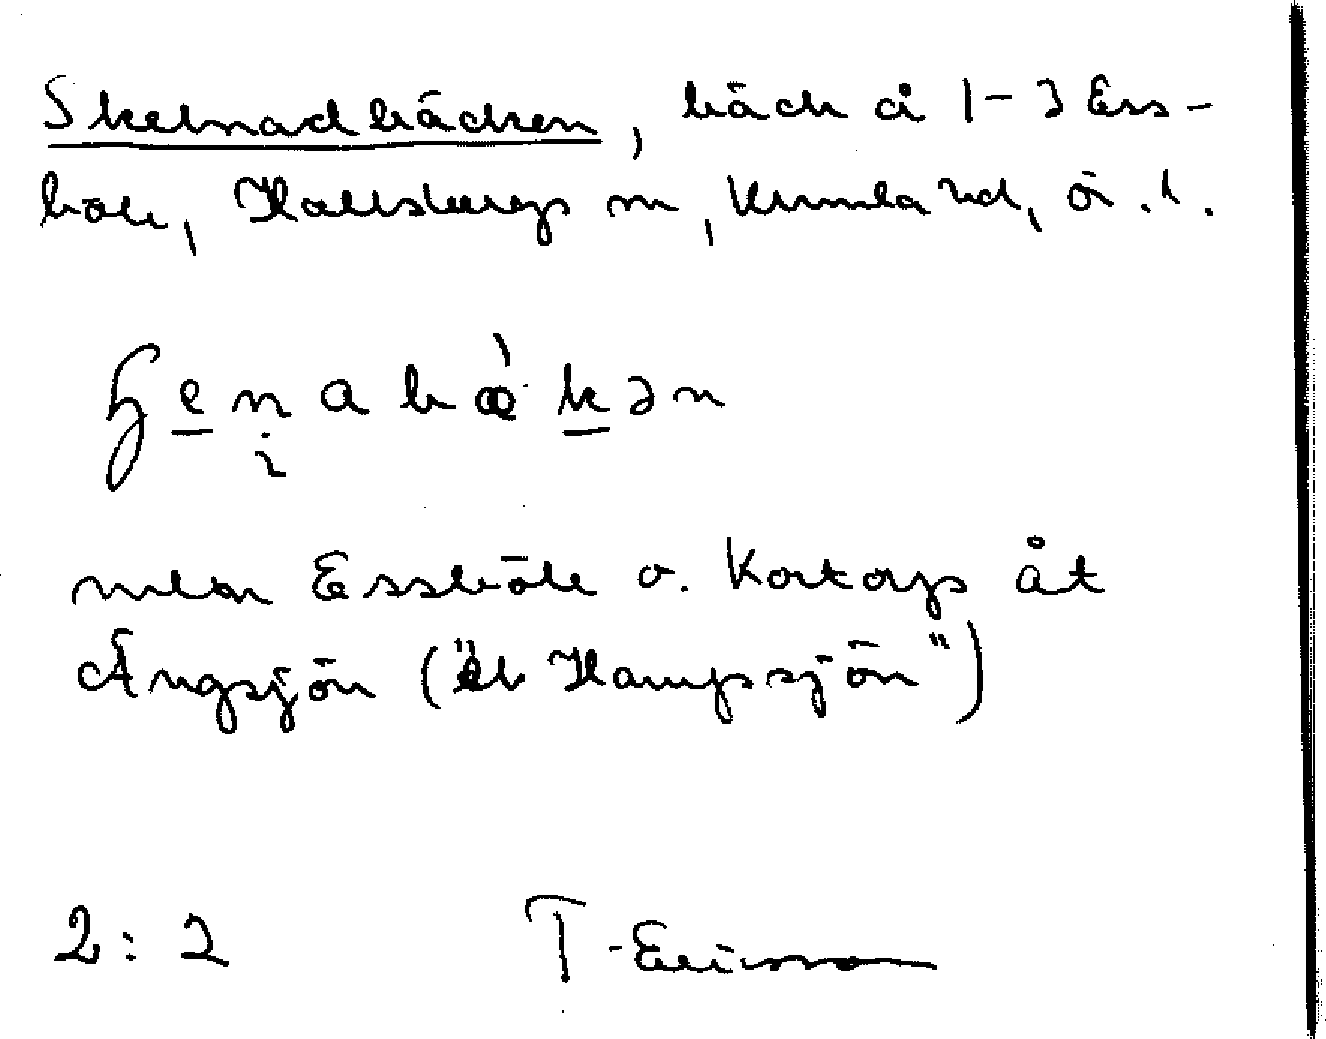 Skelnadbäcken, bäck å 1-3 Ess-
böle, Hallsbergs sn, Kumla hd, ö.l.
ʃenabæ̀kən
mellan Essböle o. Kortorp åt
Ängsjön ("åt Hampsjön")
2:2 T. Ericsson